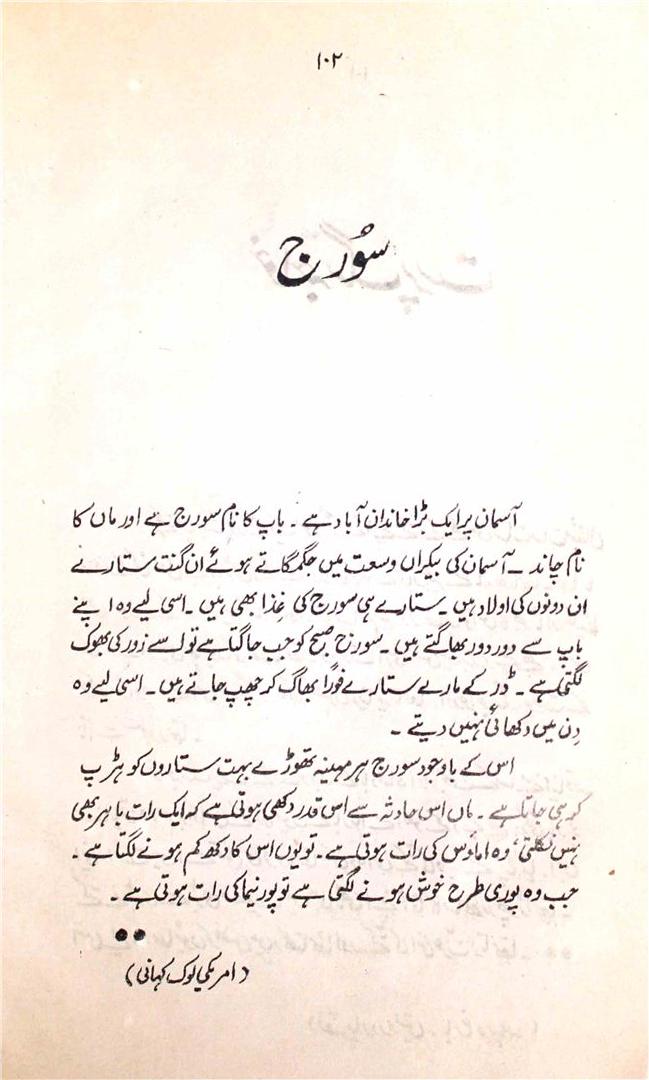 ۱۰۲
سوُرج
آسمان پر ایک بڑا خاندان آباد ہے ۔ باپ کا نام سورج ہے اور ماں کا
نام چاند ۔ آسمان کی بیکراں وسعت میں جگمگاتے ہوئے ان گنت ستارے
ان دونوں کی اولاد ہیں ۔ ستارے ہی سورج کی غِذا بھی ہیں ۔ اسی لیے وہ اپنے
باپ سے دور دور بھاگتے ہیں ۔ سورج صبح کو جب جاگتا ہے تو اسے زور کی بھوک
لگتی ہے ۔ ڈر کے مارے ستارے فورًا بھاگ کر چھپ جاتے ہیں ۔ اسی لیے وہ
دِن میں دکھائی نہیں دیتے ۔
اس کے باوجود سورج ہر مہینہ تھوڑے بہت ستاروں کو ہڑپ
کر ہی جاتا ہے ۔ ماں اس حادثہ سے اس قدر دکھی ہوتی ہے کہ ایک رات باہر بھی
نہیں نکلتی، وہ اماؤس کی رات ہوتی ہے ۔ تو یوں اس کا دکھ کم ہونے لگتا ہے ۔
جب وہ پوری طرح خوش ہونے لگتی ہے تو پورنیما کی رات ہوتی ہے ۔
●●
(امریکی لوک کہانی)